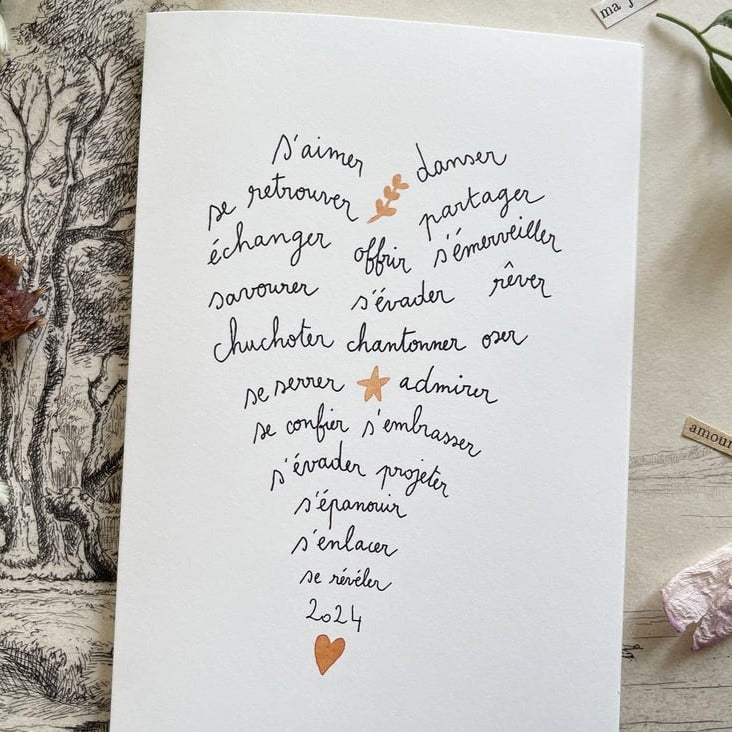 ma j
s'aimer danser
se retrouver partager
échanger offrir s'émerveiller
savourer s'évader rêver
chuchoter chantonner oser
se serrer admirer
se confier s'embrasser
s'évader projeter
s'épanouir
s'enlacer
se révéler
2024
amour